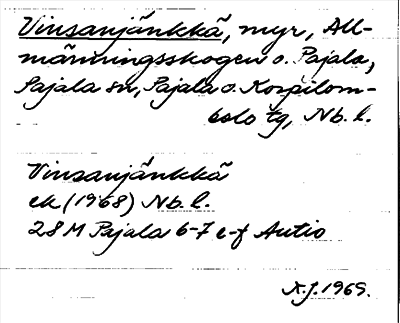 Vinsanjänkkä, myr, All-
männingsskogen o. Pajala,
Pajala sn, Pajala o. Korpilom-
bolo tg, Nb. l.
Vinsanjänkkä
ek (1968) Nb. l.
28M Pajala 6-7 e-f Autio
N.J. 1969.